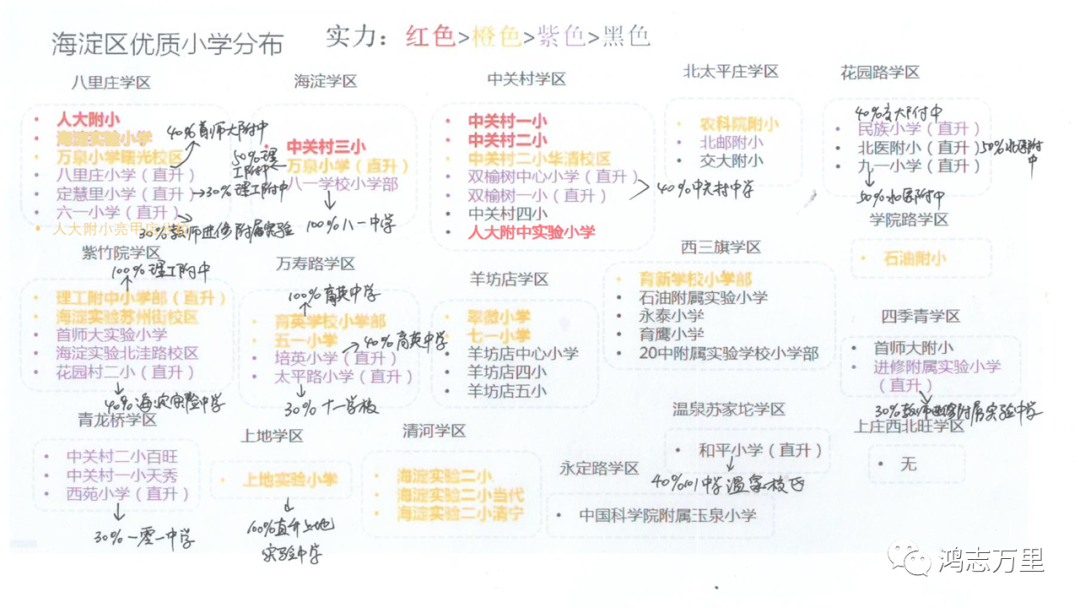 海淀区优质小学分布
实力：红色>橙色>紫色>黑色
八里庄学区
• 人大附小
• 海淀实验小学
40%首师大附中
• 万泉小学曙光校区
• 八里庄小学（直升）
• 定慧里小学（直升）
30%理工附中
• 六一小学（直升）
30%教师进修附属实验
• 人大附小亮甲店校区
海淀学区
• 中关村三小
50%理工附中
• 万泉小学（直升）
• 八一学校小学部
100%八一中学
中关村学区
• 中关村一小
• 中关村二小
• 中关村二小华清校区
• 双榆树中心小学（直升）
• 双榆树一小（直升）
40%中关村中学
• 中关村四小
• 人大附中实验小学
北太平庄学区
• 农科院附小
• 北邮附小
• 交大附小
花园路学区
40%交大附中
• 民族小学（直升）
• 北医附小（直升）
50%北医附中
• 九一小学（直升）
50%北医附中
学院路学区
• 石油附小
紫竹院学区
100%理工附中
• 理工附中小学部（直升）
• 海淀实验苏州街校区
• 首师大实验小学
• 海淀实验北洼路校区
• 花园村二小（直升）
40%海淀实验中学
万寿路学区
100%育英中学
• 育英学校小学部
• 五一小学
40%育英中学
• 培英小学（直升）
• 太平路小学（直升）
30%十一学校
羊坊店学区
• 翠微小学
• 七一小学
• 羊坊店中心小学
• 羊坊店四小
• 羊坊店五小
西三旗学区
• 育新学校小学部
• 石油附属实验小学
• 永泰小学
• 育鹰小学
• 20中附属实验学校小学部
四季青学区
• 首师大附小
• 进修附属实验小学
（直升）
30%教师进修附属实验中学
青龙桥学区
• 中关村二小百旺
• 中关村一小天秀
• 西苑小学（直升）
30%一零一中学
上地学区
• 上地实验小学
100%直升上地
实验中学
清河学区
• 海淀实验二小
• 海淀实验二小当代
• 海淀实验二小清宁
温泉苏家坨学区
• 和平小学（直升）
40%101中学温泉校区
永定路学区
• 中国科学院附属玉泉小学
上庄西北旺学区
• 无
鸿志万里